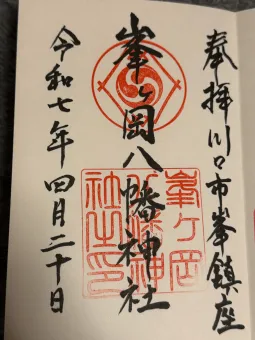 奉拝川口市峯鎮座
峯ヶ岡八幡神社
令和七年四月二十日
峯ヶ岡
八幡神
社之印